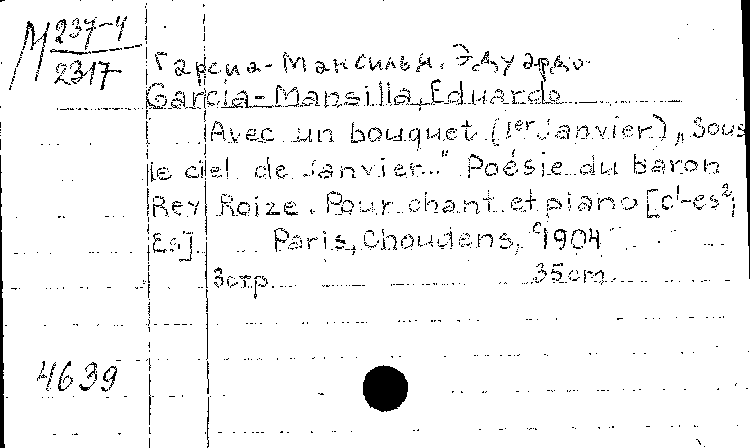 М 237-4
2317
Гарсиа-Мансилья, Эдуардо
García-Mansilla, Eduardo
Avec un bouquet (1er Janvier) „Sous
le ciel de Janvier..." Poésie du baron
Rey Roize. Pour chant et piano [c¹-es²;
Es] Paris, Choudens, c1904
3 стр. 35 cm
4639